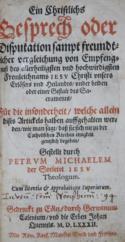 Ein Christlichs
Gesprech oder
Disputation sampt freundt-
licher vergleichung von Empfeng-
nus des allerheiligsten und hochwürdigsten
Fronleichnams IESV Christi unsers
Erlösers und Heilandts: under beiden
oder einer Gestalt des Sa-
craments:
Für die insonderheit, welche allein
dises Artickls halben auffgehalten wer-
den, wie man sagt, das sie sich nit zu der
Catholischen Kirchen
gentzlich begeben.
Gestellt durch
PETRVM MICHAELEM
der Societet IESV
Theologum.
Cum licentia & Approbatione superiorum.
Getruckt zu Cöln, durch Gervvinum
Calenium, und die Erben Johan
Quentels, M. D. LXXXII.
Mit Röm. Kais. Maiestat